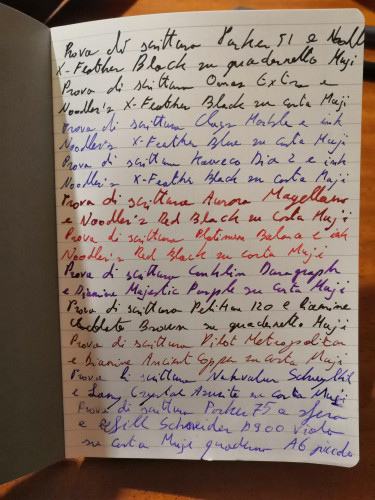 Prova di scrittura Parker 51 e Noodler
X-Feather Black su quadernetto Muji
Prova di scrittura Omas Extra e
Noodler's X-Feather Black su carta Muji
Prova di scrittura Marble e ink
Noodler's X-Feather Blue su carta Muji
Prova di scrittura Kaweco Dia 2 e ink
Noodler's X-Feather Black su carta Muji
Prova di scrittura Aurora Magellano
e Noodler's Red Black su carta Muji
Prova di scrittura Platinum e ink
Noodler's Red Black su carta Muji
Prova di scrittura Conklin Duragraph
e Diamine Majestic Purple su carta Muji
Prova di scrittura Pelikan 120 e Diamine
Chocolate Brown su quadernetto Muji
Prova di scrittura Pilot Metropolitan
e Diamine Ancient Copper su carta Muji
Prova di scrittura Nahvalur
e Lamy Crystal Azurite su carta Muji
Prova di scrittura Parker 75 a sfera
e refill Schneider viola
su carta Muji quaderno A6 piccolo